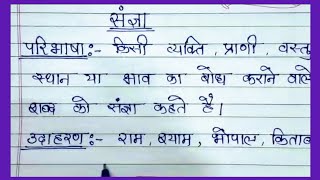 संज्ञा
परिभाषा:- किसी व्यक्ति, प्राणी, वस्तु
स्थान या भाव का बोध कराने वाले
शब्द को संज्ञा कहते है।
उदाहरण:- राम, श्याम, भोपाल, किताब